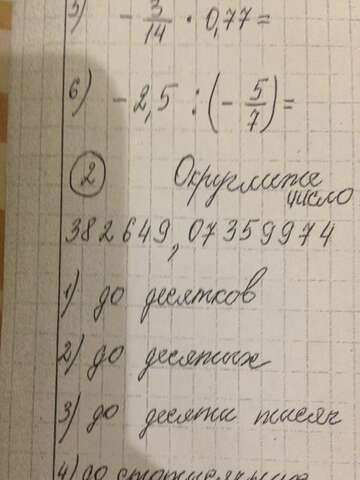 5) - 3/14 · 0,77 =
6) - 2,5 : (- 5/7) =
2 Округлите
число
382649,07359974
1) до десятков
2) до десятых
3) до десяти тысяч
4) до стотысячных